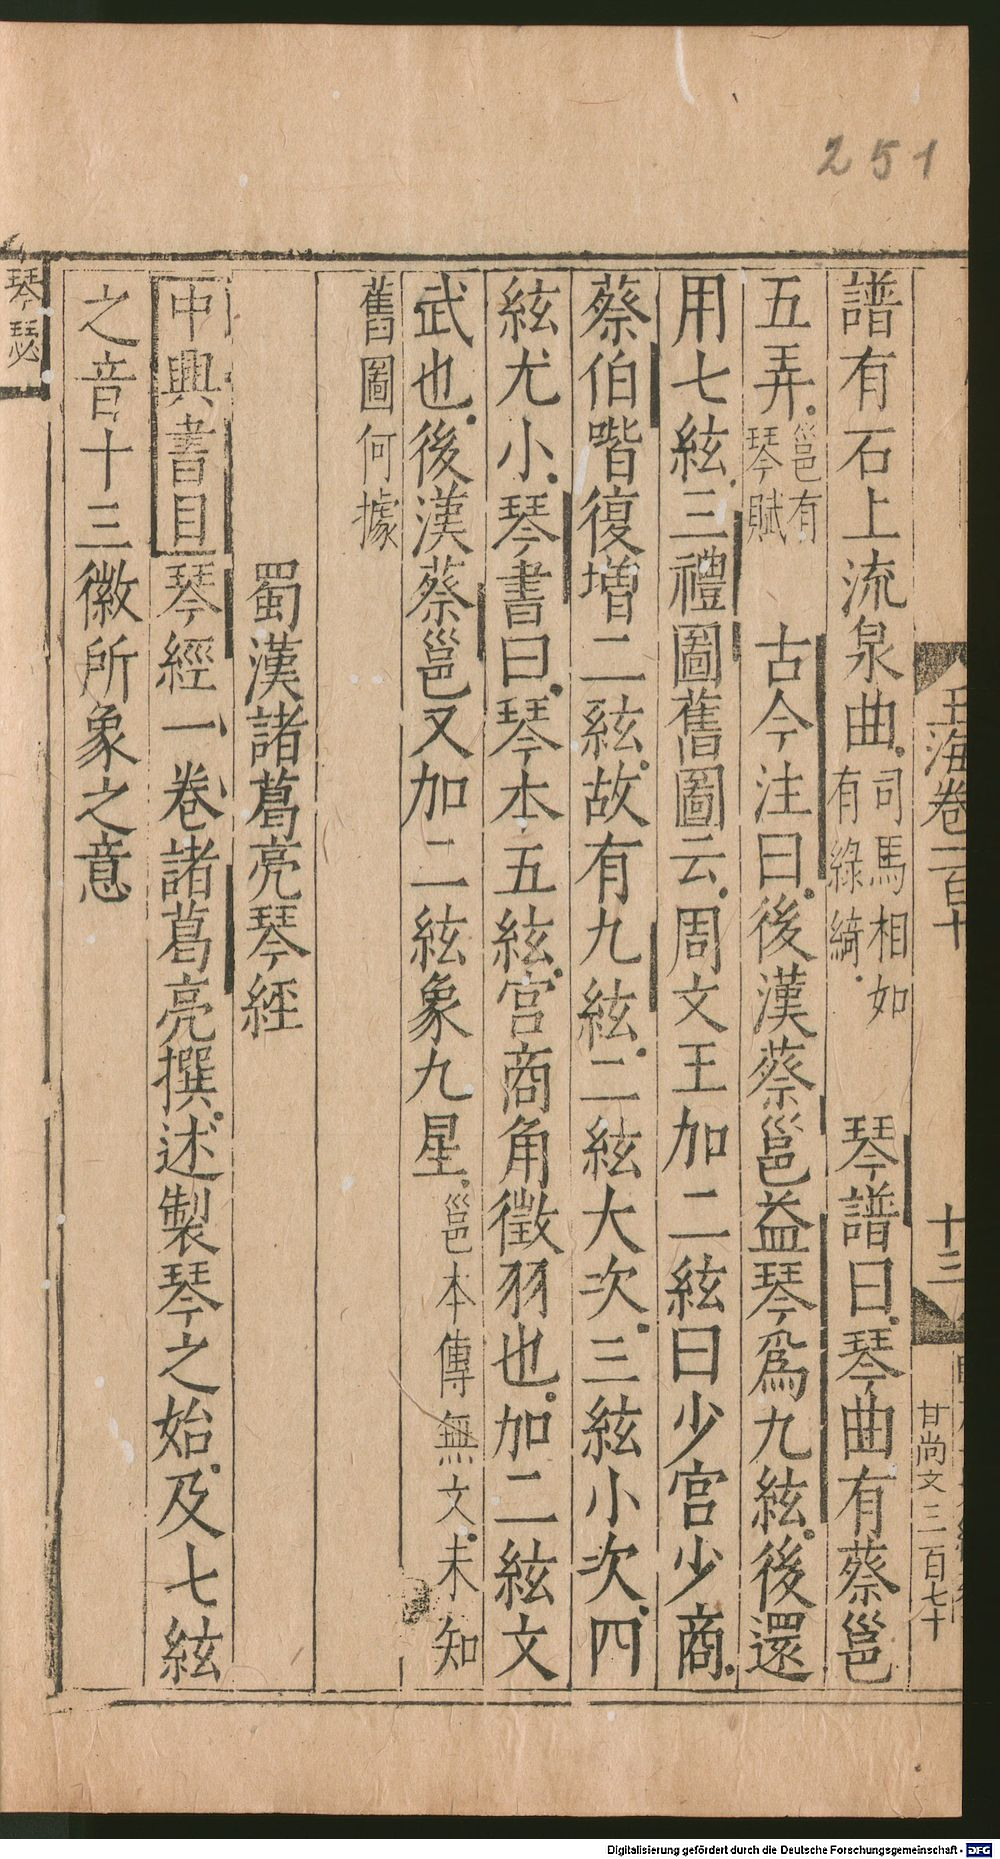 251
玉海卷一百十
十三
甘尚文三百七十
譜有石上流泉曲司馬相如有綠綺琴譜曰琴曲有蔡邕
五弄邕有琴賦古今注曰後漢蔡邕益琴爲九絃後還
用七絃三禮圖舊圖云周文王加二絃曰少宮少商
蔡伯喈復增二絃故有九絃二絃大次三絃小次四
絃尤小琴書曰琴本五絃宮商角徵羽也加二絃文
武也後漢蔡邕又加二絃象九星邕本傳無文未知
舊圖何據
蜀漢諸葛亮琴經
中興書目琴經一卷諸葛亮撰述製琴之始及七絃
之音十三徽所象之意
琴瑟
Digitalisierung gefördert durch die Deutsche Forschungsgemeinschaft - DFG